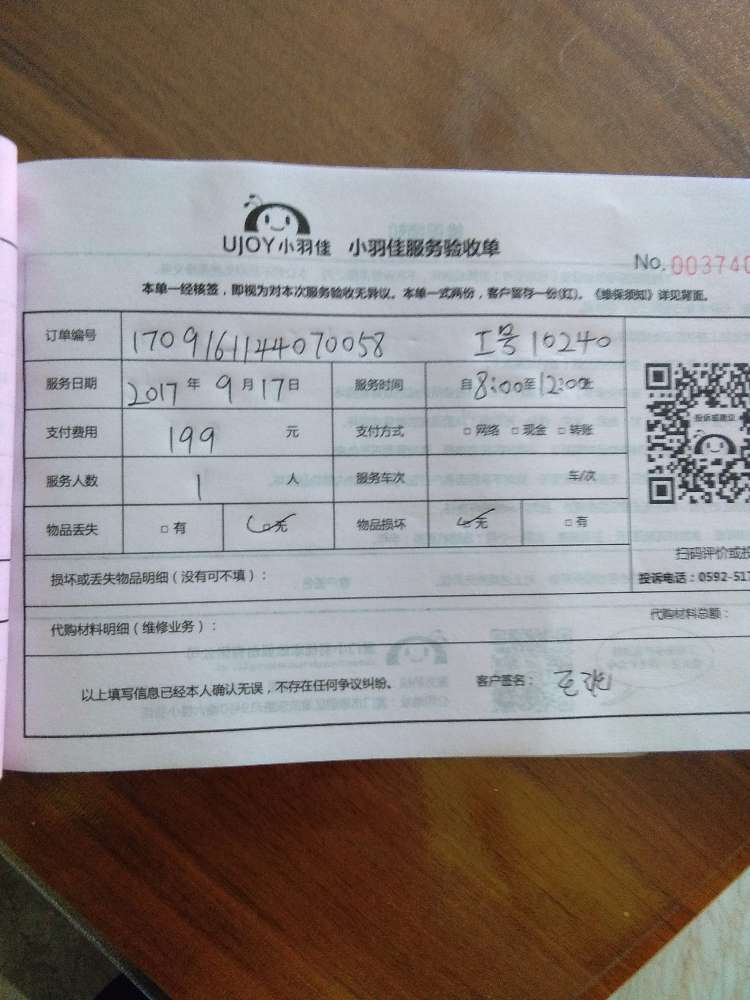 UJOY小羽佳 小羽佳服务验收单
No. 003740
本单一经核签，即视为对本次服务验收无异议。本单一式两份，客户留存一份(红)。《维保须知》详见背面。
订单编号 1709161144070058 工号 10240
服务日期 2017 年 9 月 17 日 服务时间 自 8:00 至 12:00 止
支付费用 199 元 支付方式 □ 网络 □ 现金 □ 转账
投诉或建议
服务人数 1 人 服务车次 车/次
物品丢失 □ 有 □ 无 物品损坏 □ 无 □ 有
扫码评价或投
损坏或丢失物品明细（没有可不填）：
投诉电话：0592-517
代购材料明细（维修业务）： 代购材料总额：
以上填写信息已经本人确认无误，不存在任何争议纠纷。 客户签名：